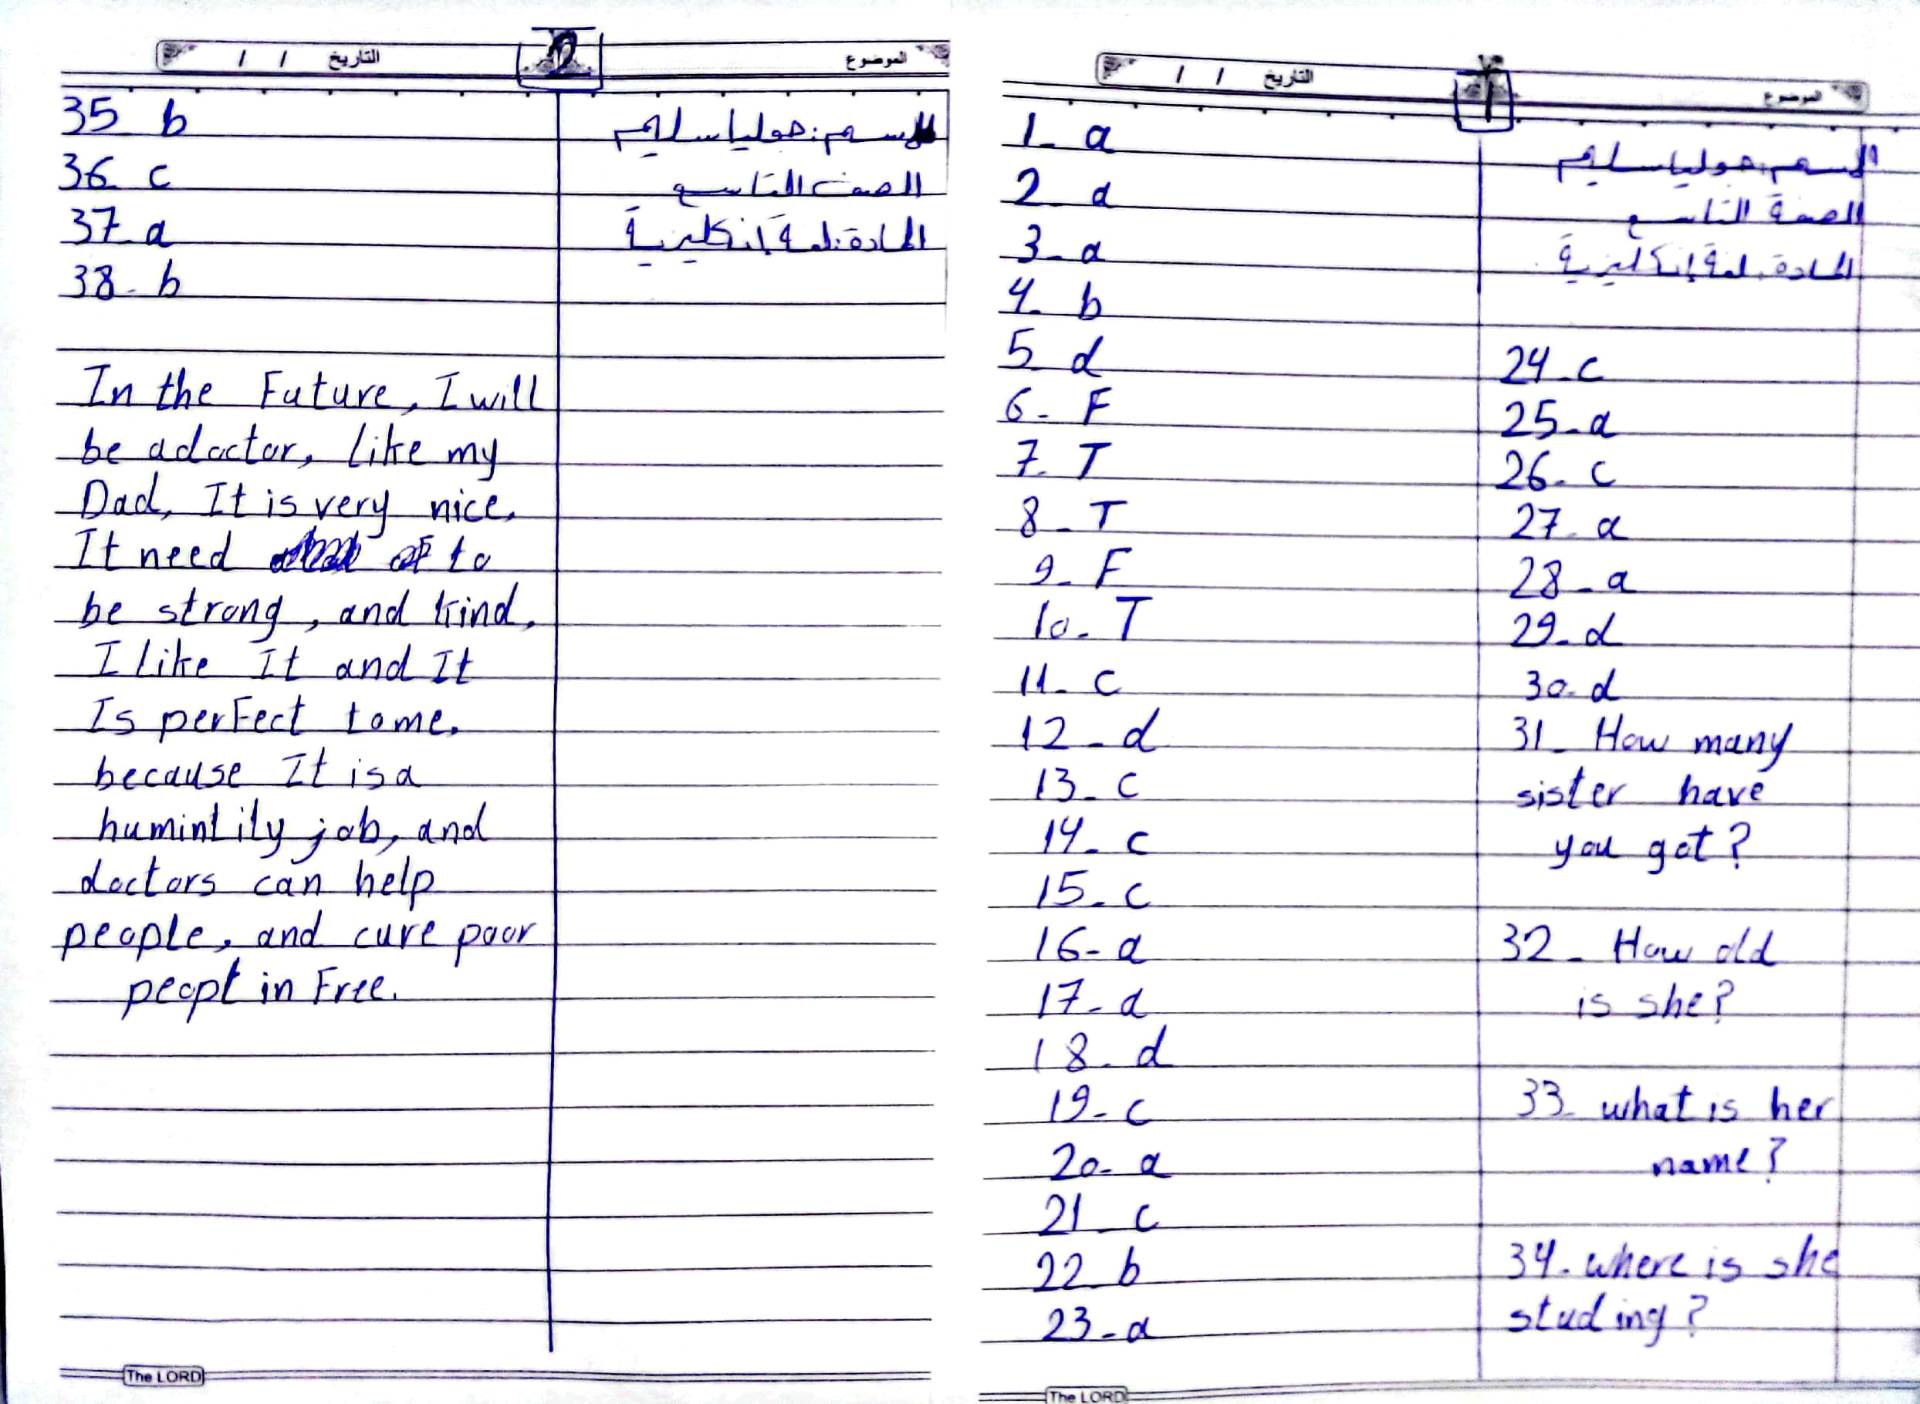 التاريخ / /
2
الموضوع
35_ b
36_ c
37_ a
38_ b
الاسم: جوليا سليم
الصف التاسع
المادة: لغة إنكليزية
In the Future, I will
be adoctor, like my
Dad, It is very nice.
It need to
be strong, and kind.
I like It and It
Is perFect tome.
because It is a
humintlily job, and
doctors can help
people, and cure poor
peopl in Free.
The LORD
التاريخ / /
1
الموضوع
1_ a
2_ a
3_ a
4_ b
5_ d
6_ F
7_ T
8_ T
9_ F
10_ T
11_ c
12_ d
13_ c
14_ c
15_ c
16_ a
17_ a
18_ d
19_ c
20_ a
21_ c
22_ b
23_ a
الاسم: جوليا سليم
الصف التاسع
المادة: لغة إنكليزية
24_ c
25_ a
26_ c
27_ a
28_ a
29_ d
30_ d
31_ How many
sister have
you got?
32_ How old
is she?
33_ what is her
name?
34_ where is she
studing?
The LORD